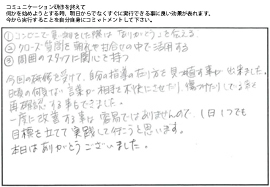 コミュニケーション研修を終えて
何かを始めようとする時、明日からでなくすぐに実行できる事に良い効果が表れます。
今から実行することを自分自身にコミットメントして下さい。
「ありがとう」と伝える
② クローズ質問を
③ 周囲のスタッフに
今回の研修を受けて、自分の指導の在り方を見つめ直す事が出来ました。
日頃の何気ない言葉が相手を不快にさせたり、傷つけたりしている
再確認する事もできました。
一度に改善する事は容易ではありませんので、1日1つでも
目標を立てて実践して行こうと思います。
本日はありがとうございました。